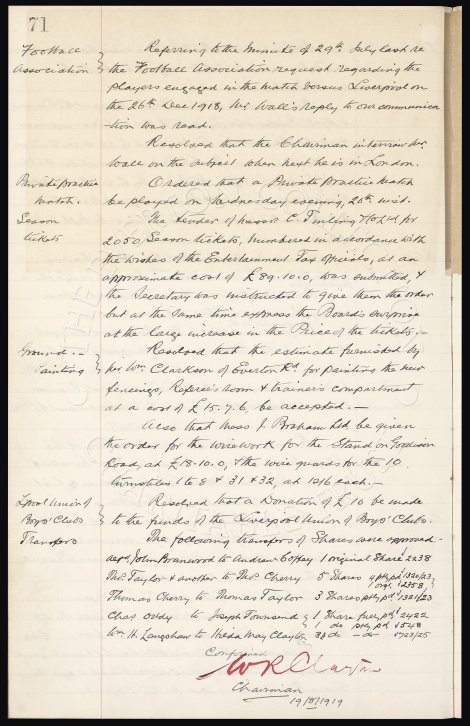 71
Football
Association
Referring to the Minute of 29th July last re
the Football Association request regarding the
players engaged in the match versus Liverpool on
the 26th Dec 1918, Mr Wall's reply to our communica
-tion was read.
Resolved that the Chairman interview Mr
Wall on the subject when next he is in London.
Private Practice
Match.
Ordered that a Private Practice Match
be played on Wednesday evening, 20th inst.
Season
tickets
The tender of Messrs C. Tinling & Co Ltd for
2000 Season tickets, numbered in accordance with
the wishes of the Entertainment Tax officials, at an
approximate cost of £89.10.0, was submitted, &
the Secretary was instructed to give them the order
but at the same time express the Board's surprise
at the large increase in the Price of the tickets. -
Ground :-
Painting
Resolved that the estimate furnished by
Mr Wm. Clarkson of Everton Rd. for painting the new
fencings, Referee's room & trainers compartment
at a cost of £15.7.6, be accepted. -
Also that Mess J. Braham Ltd be given
the order for the wirework for the Stand on Goodison
Road, at £18.10.0, & the wire guards for the 10
turnstiles 1 to 8 & 31 & 32, at 12/6 each. -
Lpool Union of
Boys' Clubs
Resolved that a Donation of £10 be made
to the funds of the Liverpool Union of Boys' Clubs.
Transfers
The following transfers of Shares were approved:-
John Branwood to Andrew Coffey 1 original Share 2238
Thos Taylor & another to Thos Cherry 5 Shares 4 ptly pd 1320/23
1 orgl 2358
Thomas Cherry to Thomas Taylor 3 Shares ptly pd 1321/23
Chas Ovldy to Joseph Townsend 1 Share fully pd 2422
1 do ptly pd 1548
Wm H. Langshaw to Meda May Clayton 3 do - do - 1723/25
Confirmed
W R Clayton
Chairman
19/8/1919